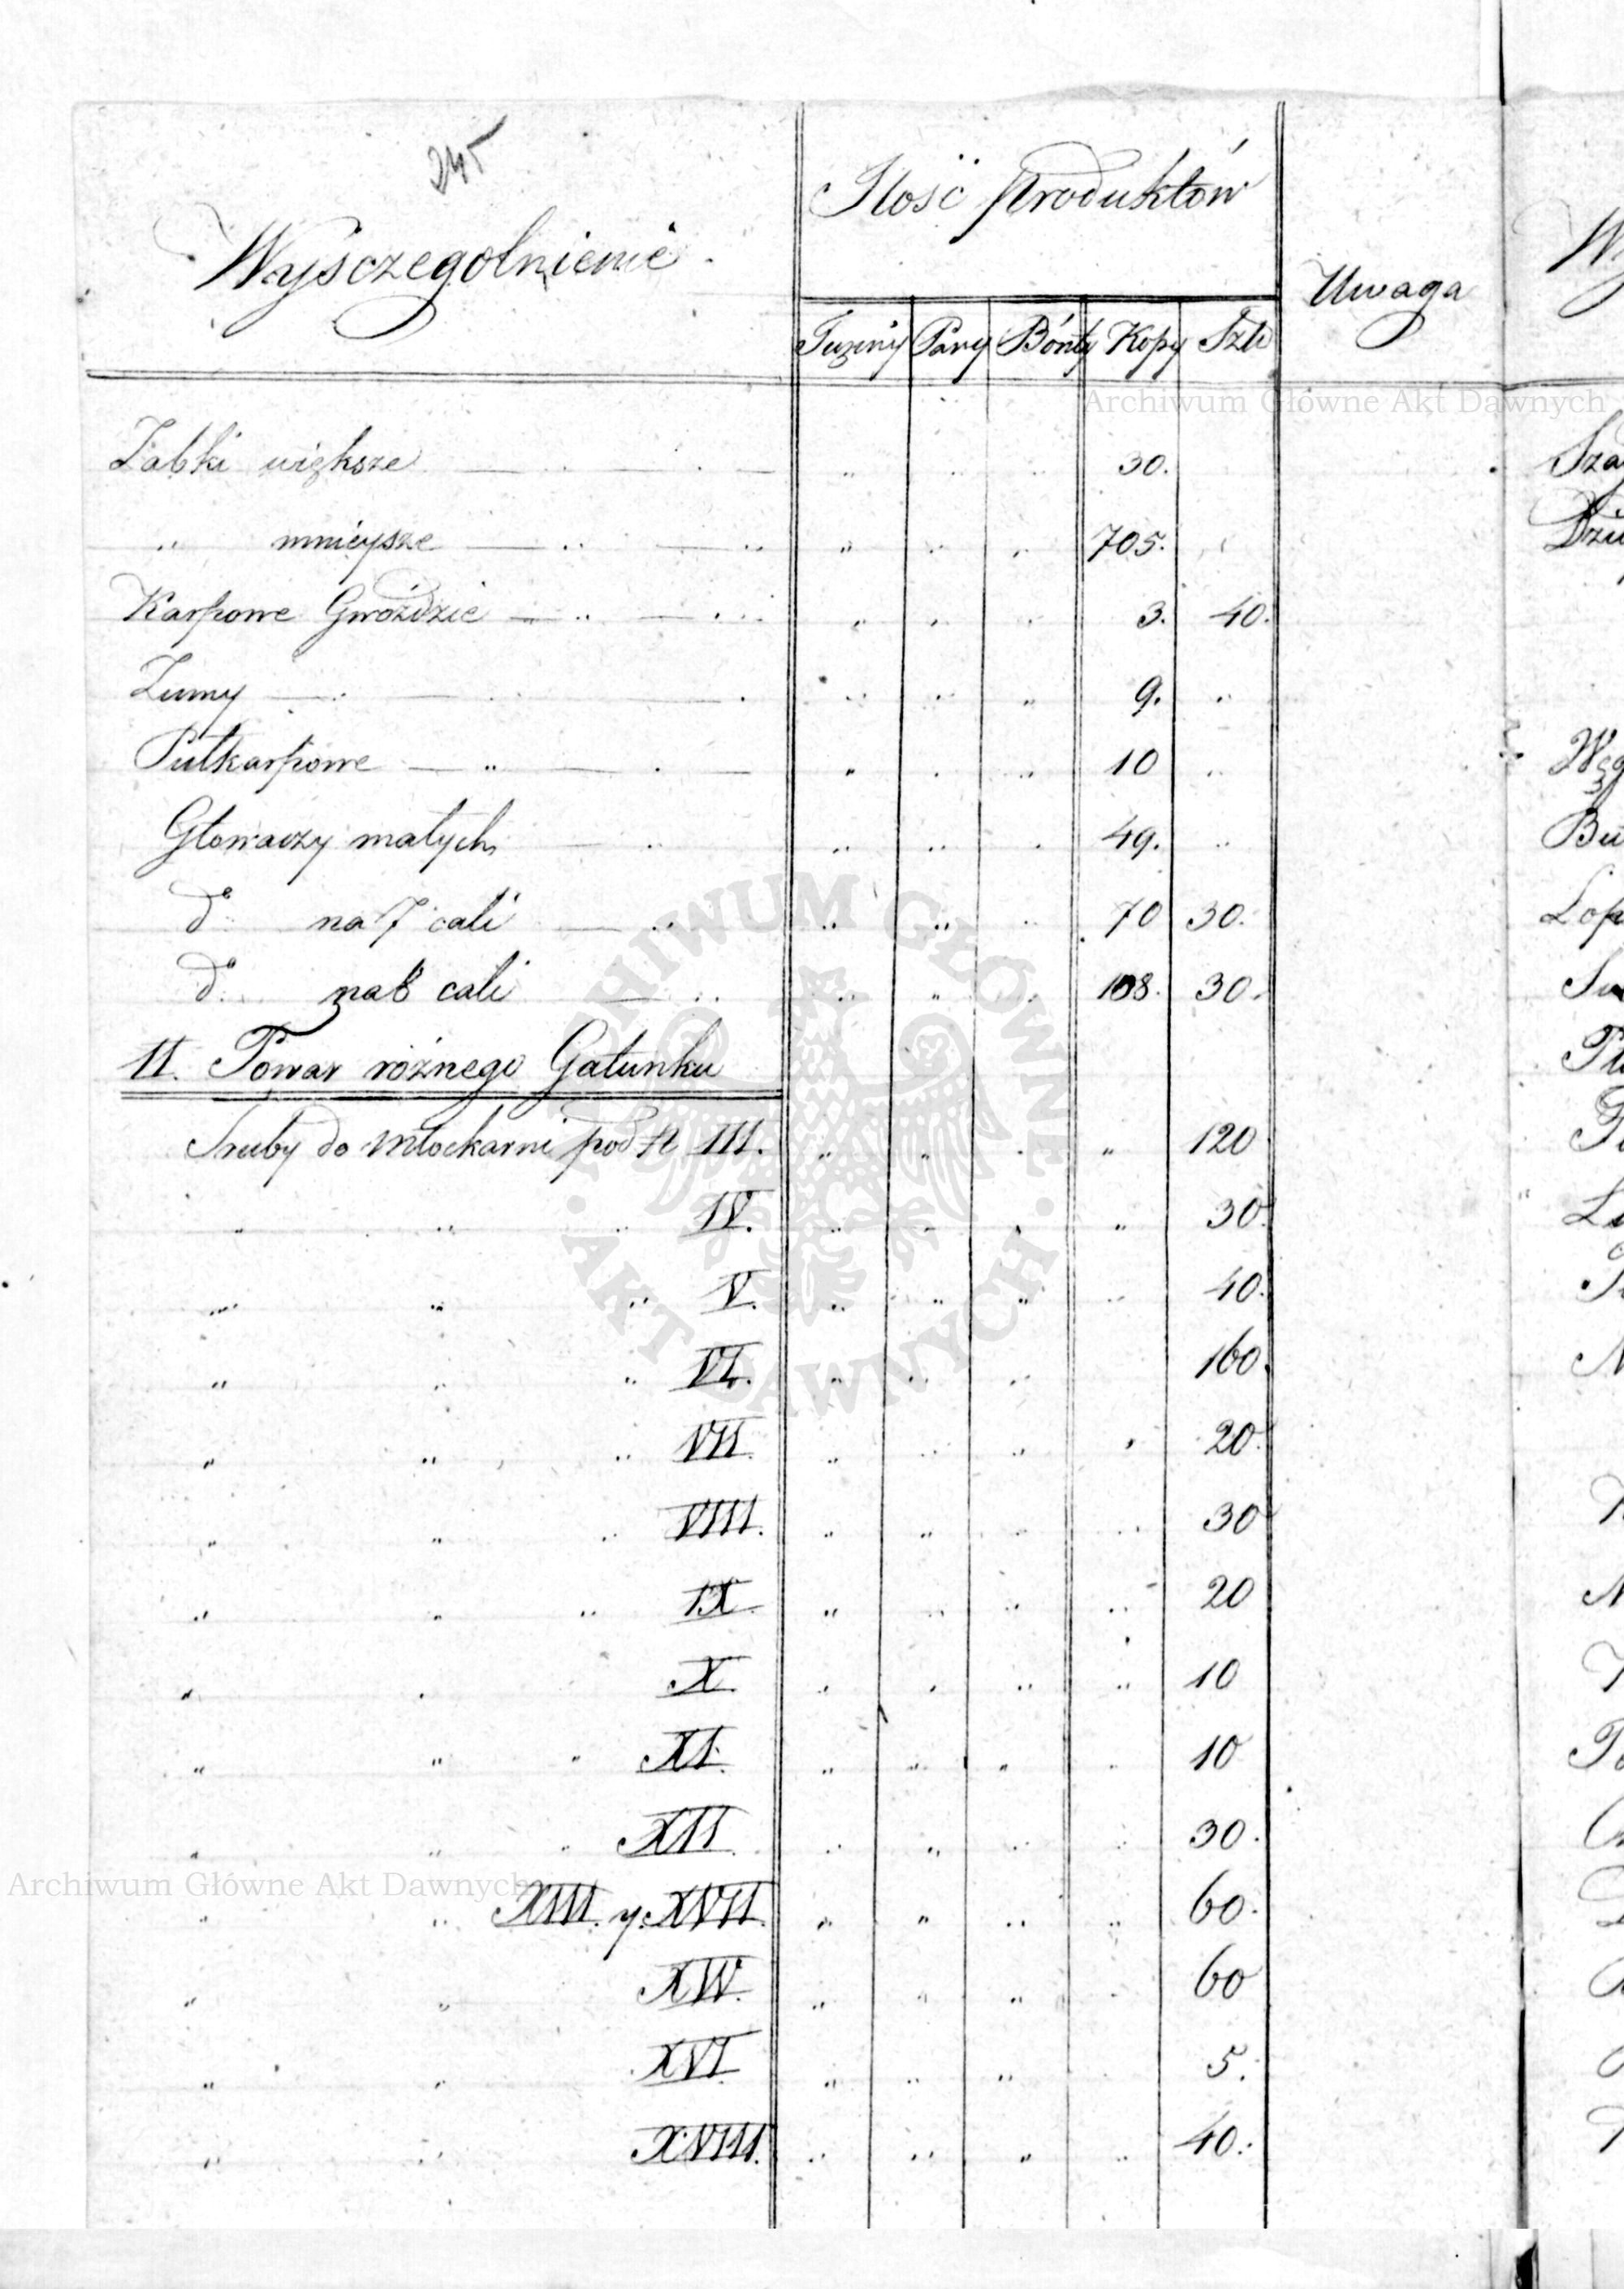 245
Wysczegolnienie
Ilość produktów
Uwaga
Tuziny Pary Bónty Kopy Szt:
Żabki większe 30.
" mnieysze 705.
Karpowe Gwoździe 3. 40.
Lumy 9. "
Pułkarpowe 10 "
Głowaczy małych 49. "
do na 7 cali 70 30.
do na 8 cali 108. 30.
II. Towar rożnego Gatunku
Sruby do Młockarni pod № III. " " " " 120
" " " IV. " " " " 30.
" " " V. " " " " 40.
" " " VI. " " " 160.
" " " VII. " " " " 20.
" " " VIII. " " " " 30
" " " IX. " " " " 20
" " X. " " " " 10
" " " XI. " " " " 10
" " " XII. " " " " 30.
" " XIII. y. XVII. " " " " 60.
" " XIV. " " " " 60
" " XVI. " " " 5.
" " XVIII. " " " " 40.
Archiwum Główne Akt Dawnych
ARCHIWUM GŁÓWNE · AKT DAWNYCH ·
Archiwum Główne Akt Dawnych